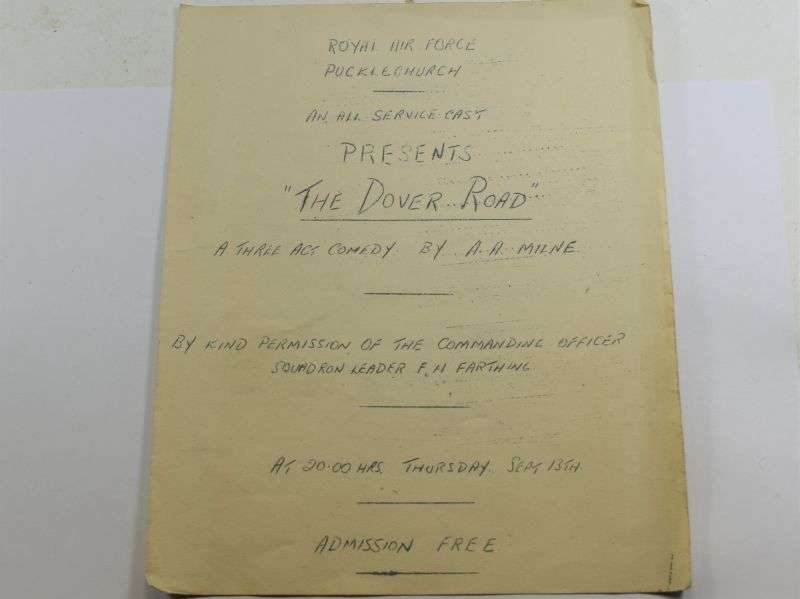 ROYAL AIR FORCE
PUCKLECHURCH
AN ALL SERVICE CAST
PRESENTS
"THE DOVER ROAD"
A THREE ACT COMEDY BY A.A. MILNE
BY KIND PERMISSION OF THE COMMANDING OFFICER
SQUADRON LEADER F.H FARTHING
AT 20.00 HRS. THURSDAY. SEPT 13TH.
ADMISSION FREE